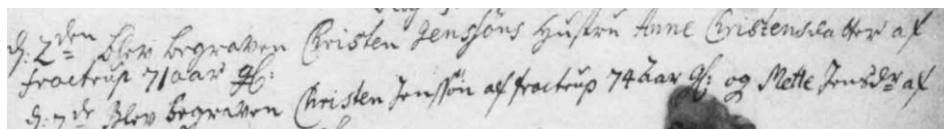 d: 2den blev begraven Christen Jenssøns Hustru Anne Christensdatter af
fractrup 71 aar gl:
d: 7de blev begraven Christen Jenssøn af fractrup 74 aar gl: og Mette Jensdr af